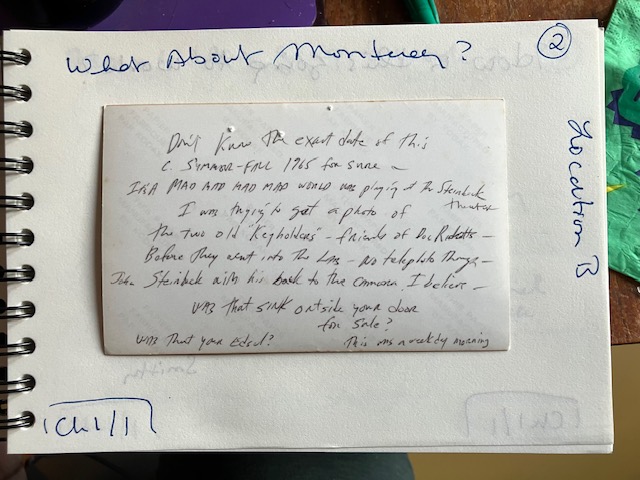 What About Monterey?
2
Don't Know The exact date of this
c. SUMMER-FALL 1965 for sure -
IT'S A MAD MAD MAD WORLD was playing at the Steinbeck
theater
I was trying to get a photo of
the two old "Keyholders" - friends of Doc Ricketts -
Before They went into The LAB - no telephoto Though -
John Steinbeck with his back to the camera, I believe -
WAS That SINK outside your door
for sale?
WAS That your Edsel?
This was a weekday morning
Location B
Ch1/1